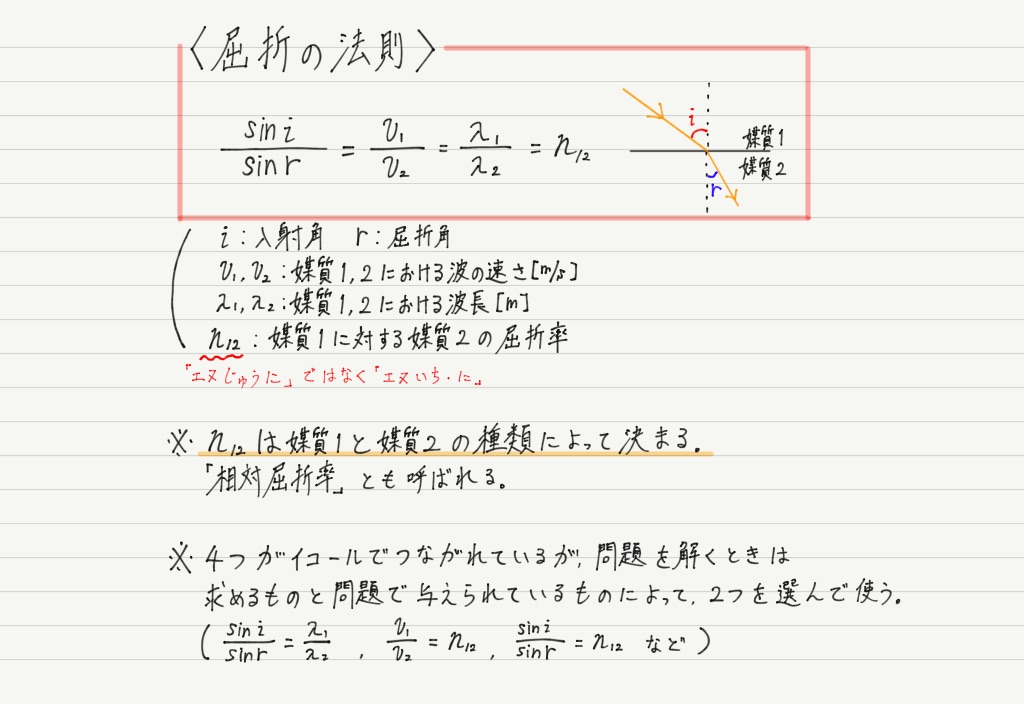 〈屈折の法則〉
sin i / sin r = v₁ / v₂ = λ₁ / λ₂ = n₁₂
i
媒質1
媒質2
r
i：入射角　r：屈折角
v₁, v₂：媒質1, 2における波の速さ[m/s]
λ₁, λ₂：媒質1, 2における波長[m]
n₁₂：媒質1に対する媒質2の屈折率
「エヌじゅうに」ではなく「エヌいち・に」
※ n₁₂は媒質1と媒質2の種類によって決まる。
「相対屈折率」とも呼ばれる。
※ 4つがイコールでつながれているが、問題を解くときは
求めるものと問題で与えられているものによって、2つを選んで使う。
( sin i / sin r = λ₁ / λ₂ , v₁ / v₂ = n₁₂ , sin i / sin r = n₁₂ など )